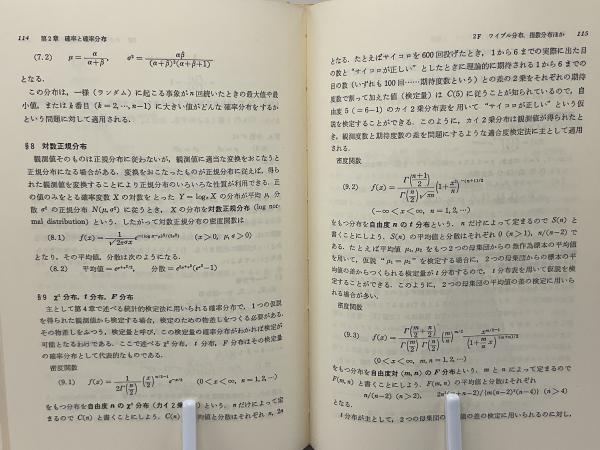 114 第2章 確率と確率分布
(7.2) μ = α/(α+β), σ² = αβ/((α+β)²(α+β+1))
となる.
この分布は,一様(ランダム)に起こる事象が n 回続いたときの最大値や最
小値,または k 番目 (k=2, …, n−1) に大きい値がどんな確率分布をするか
という問題に対して適用される.
§8 対数正規分布
観測値そのものは正規分布に従わないが,観測値に適当な変換をおこなうと
正規分布になる場合がある.変換をおこなったものが正規分布に従えば,得ら
れた観測値を変換することにより正規分布のいろいろな性質が利用できる.正
の値のみをとる確率変数 X の対数をとった Y=logₑX の分布が平均 μ,分
散 σ² の正規分布 N(μ, σ²) に従うとき,X の分布を対数正規分布 (log nor-
mal distribution) という.したがって対数正規分布の密度関数は
(8.1) f(x) = 1/(√2πσx) e^{-(log x-μ)²/(2σ²)} (x>0, μ, σ>0)
となり,その平均値,分散は次のようになる.
(8.2) 平均値=e^{μ+σ²/2}, 分散=e^{2μ+σ²}(e^{σ²}−1)
§9 χ² 分布,t 分布,F 分布
主として第4章で述べる統計的検定法に用いられる確率分布で,1つの仮説
を得られた観測値から検定する場合,検定のための物差しをつくる必要がある.
その物差しをふつう,検定量と呼び,この検定量の確率分布がわかれば検定が
可能となるわけである.ここで述べる χ² 分布,t 分布,F 分布はその検定量
の確率分布として代表的なものである.
密度関数
(9.1) f(x) = 1/(2Γ(n/2)) (x/2)^{n/2−1} e^{−x/2} (0<x<∞, n=1, 2, …)
をもつ分布を自由度 n の χ² 分布(カイ2乗 という.n だけによって定
まるので C(n) と書くことにしよう.C(n) 平均値と分散はそれぞれ n, 2n
2F ワイブル分布,指数分布ほか 115
となる.たとえばサイコロを 600 回投げたとき,1 から 6 までの実際に出た目
の数と“サイコロが正しい”としたときに理論的に期待される1から6までの
目の数(いずれも 100 回……期待度数という)との差の2乗をそれぞれの期待
度数で割って加えた値(検定量)は C(5) に従うことが知られているので,自
由度 5 (=6−1) のカイ2乗分布表を用いて“サイコロが正しい”という仮
説を検定することができる.このように,カイ2乗分布は観測値が得られたと
き,観測度数と期待度数の差を問題にするような適合度検定法に主として適用
される.
密度関数
(9.2) f(x) = Γ((n+1)/2)/(Γ(n/2)√πn) (1+x²/n)^{−(n+1)/2}
(−∞<x<∞, n=1, 2, …)
をもつ分布を自由度 n の t 分布という.n だけによって定まるので S(n) と
書くことにしよう.S(n) の平均値と分散はそれぞれ 0 (n>1), n/(n−2) で
ある.たとえば平均値 μ₁, μ₂ をもつ2つの母集団からの無作為標本の平均値
を用いて,仮説“μ₁=μ₂”を検定する場合に,2つの母集団からの標本の平
均値の差からつくられる検定量が t 分布するので,t 分布表を用いて仮説を検
定することができる.このように,2つの母集団の平均値の差の検定に用いら
れる場合が多い.
密度関数
(9.3) f(x) = Γ(m/2+n/2)/(Γ(m/2)Γ(n/2)) (m/n)^{m/2} x^{m/2−1}/(1+(m/n)x)^{(m+n)/2}
(0<x<∞, m, n=1, 2, …)
をもつ分布を自由度対 (m, n) の F 分布という.m と n によって定まるので
F(m, n) と書くことにしよう.F(m, n) の平均値と分散はそれぞれ
n/(n−2) (n>2), 2n²( +n−2)/{m(n−2)²(n−4)} (n>4)
となる.
t 分布が主として,2つの母集団の 値の差の検定に用いられるのに対し,